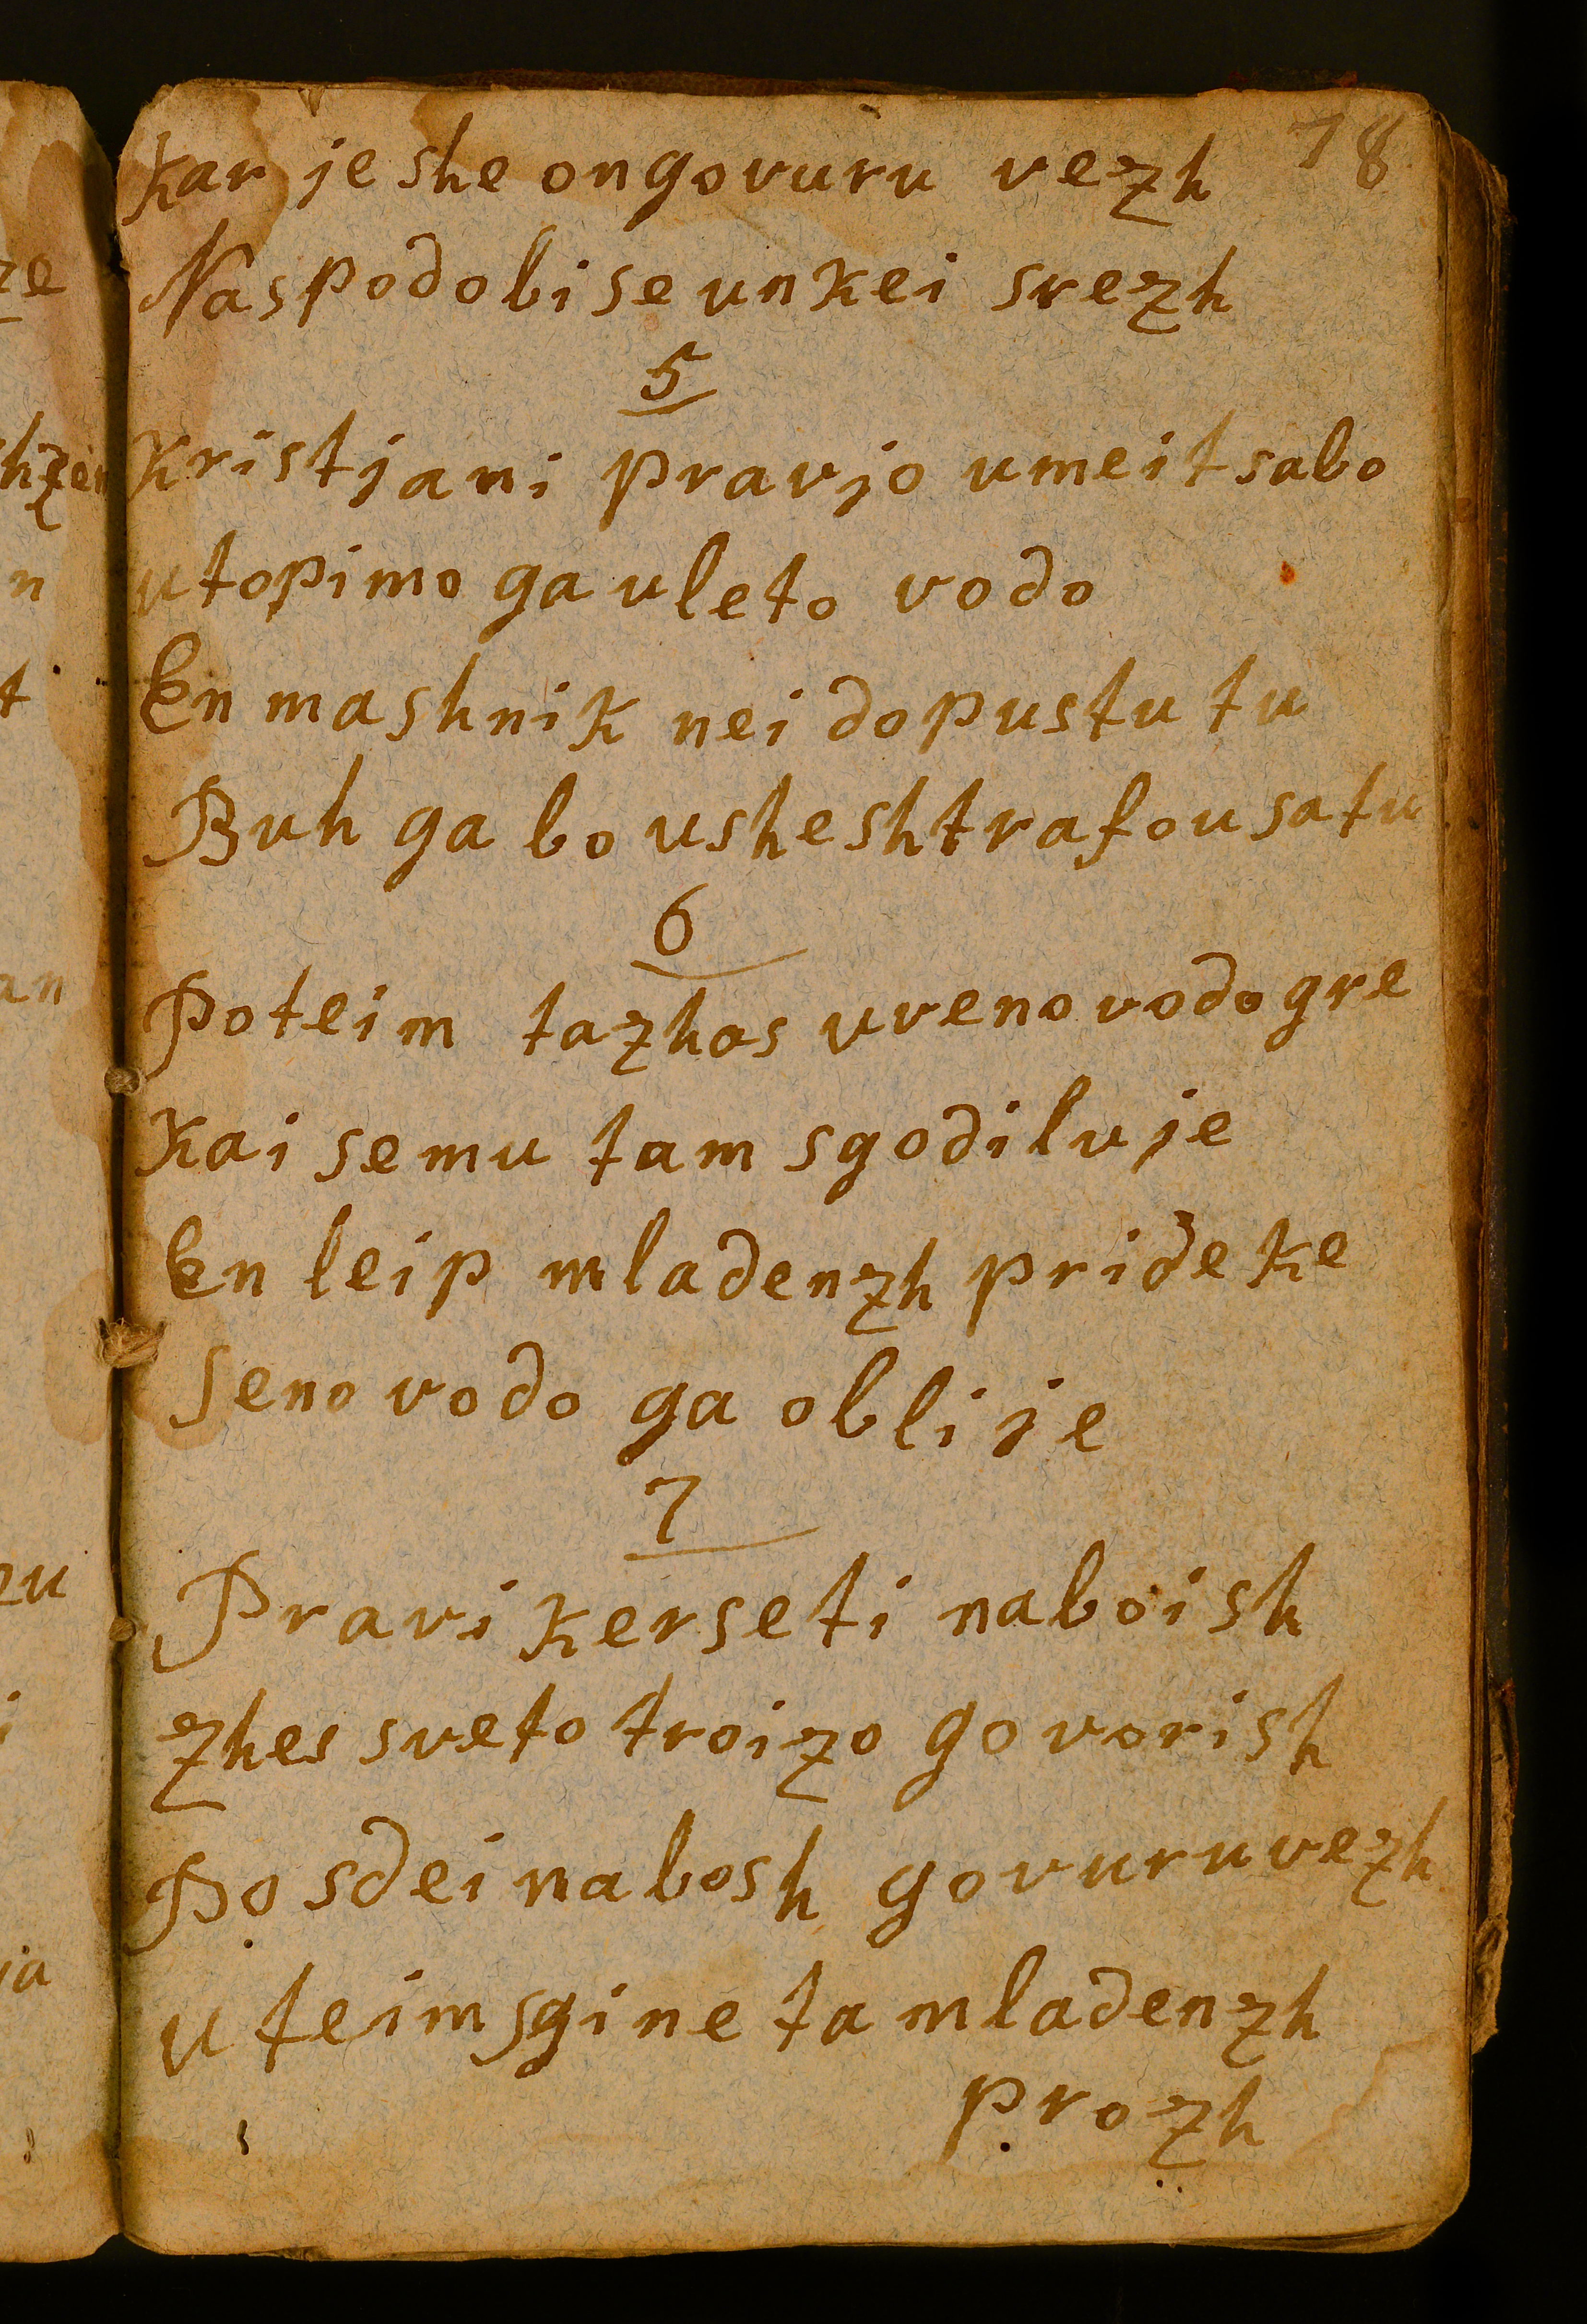 Kar je she on govuru vezh 78
Naspodobi se unkei srezh
5
Kristjani pravjo umeit sabo
utopimo ga uleto vodo
En mashnik nei dopustu tu
Buh ga bo ushe shtrafou satu
6
Poteim ta zhas uveno vodo gre
Kai semu tam sgodilu je
En leip mladenzh pride ke
Seno vodo ga oblije
7
Pravi kerseti naboish
zhes sveto troizo govorish
Posdei nabosh govuru vezh
u teim sgine ta mladenzh
prozh